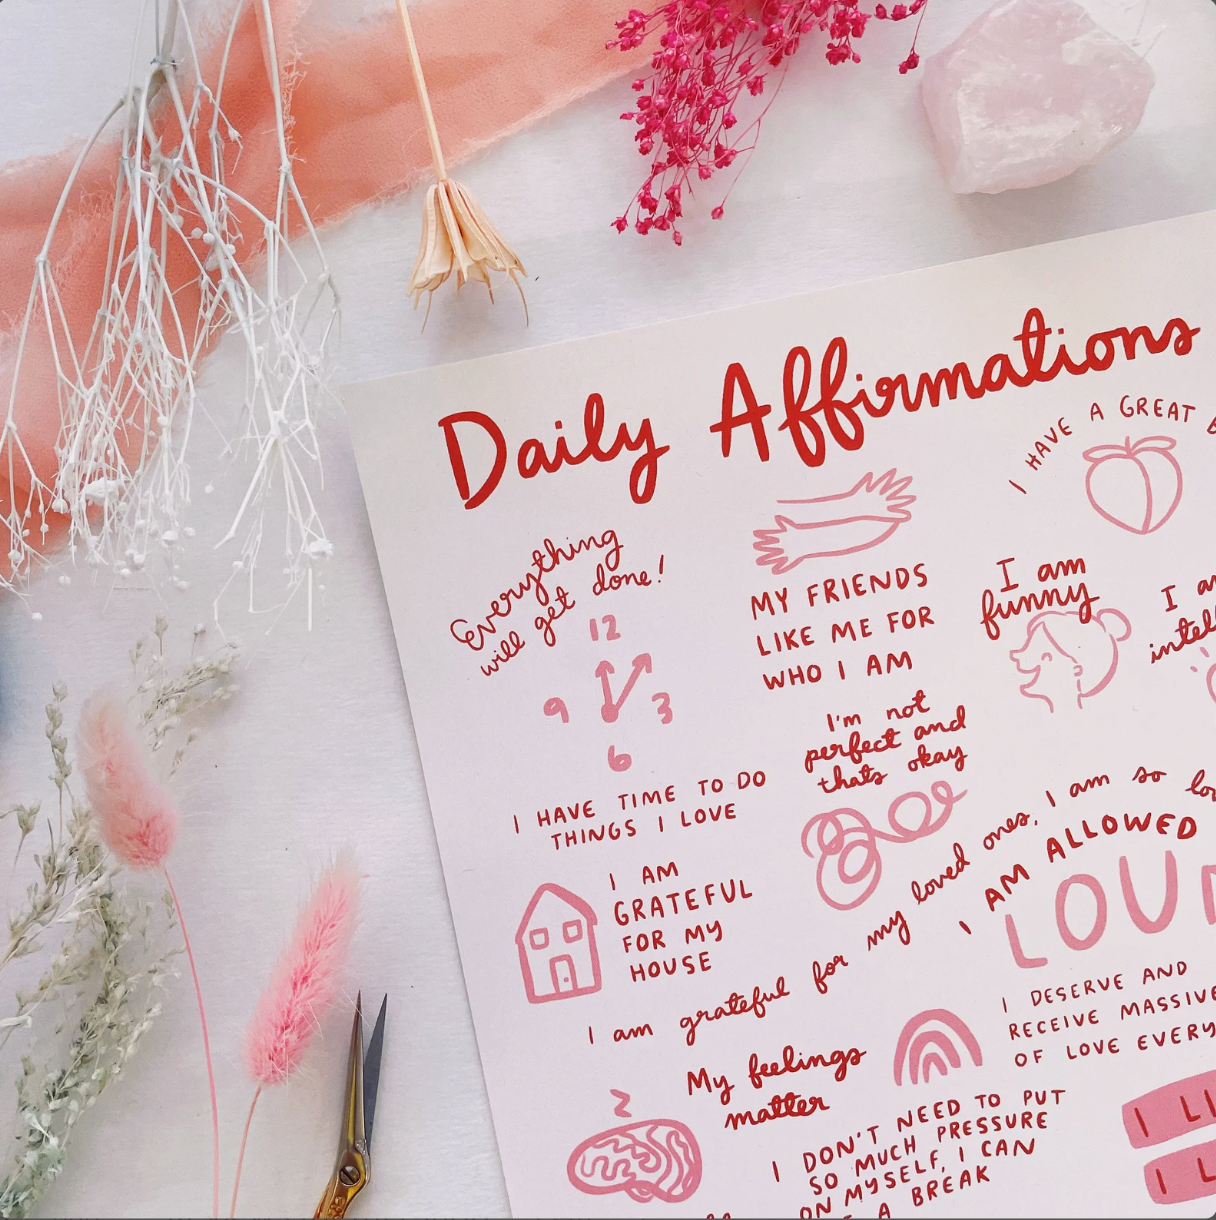 Daily Affirmations
I HAVE A GREAT
Everything
will get done!
12
9 3
6
MY FRIENDS
LIKE ME FOR
WHO I AM
I am
funny
I'm not
perfect and
thats okay
I HAVE TIME TO DO
THINGS I LOVE
I AM
GRATEFUL
FOR MY
HOUSE
I am grateful for my loved ones, I am so
I AM ALLOWED
LOU
I DESERVE AND
RECEIVE MASSIVE
OF LOVE
My feelings
matter
I DON'T NEED TO PUT
SO MUCH PRESSURE
ON MYSELF, I CAN
A BREAK
I
I